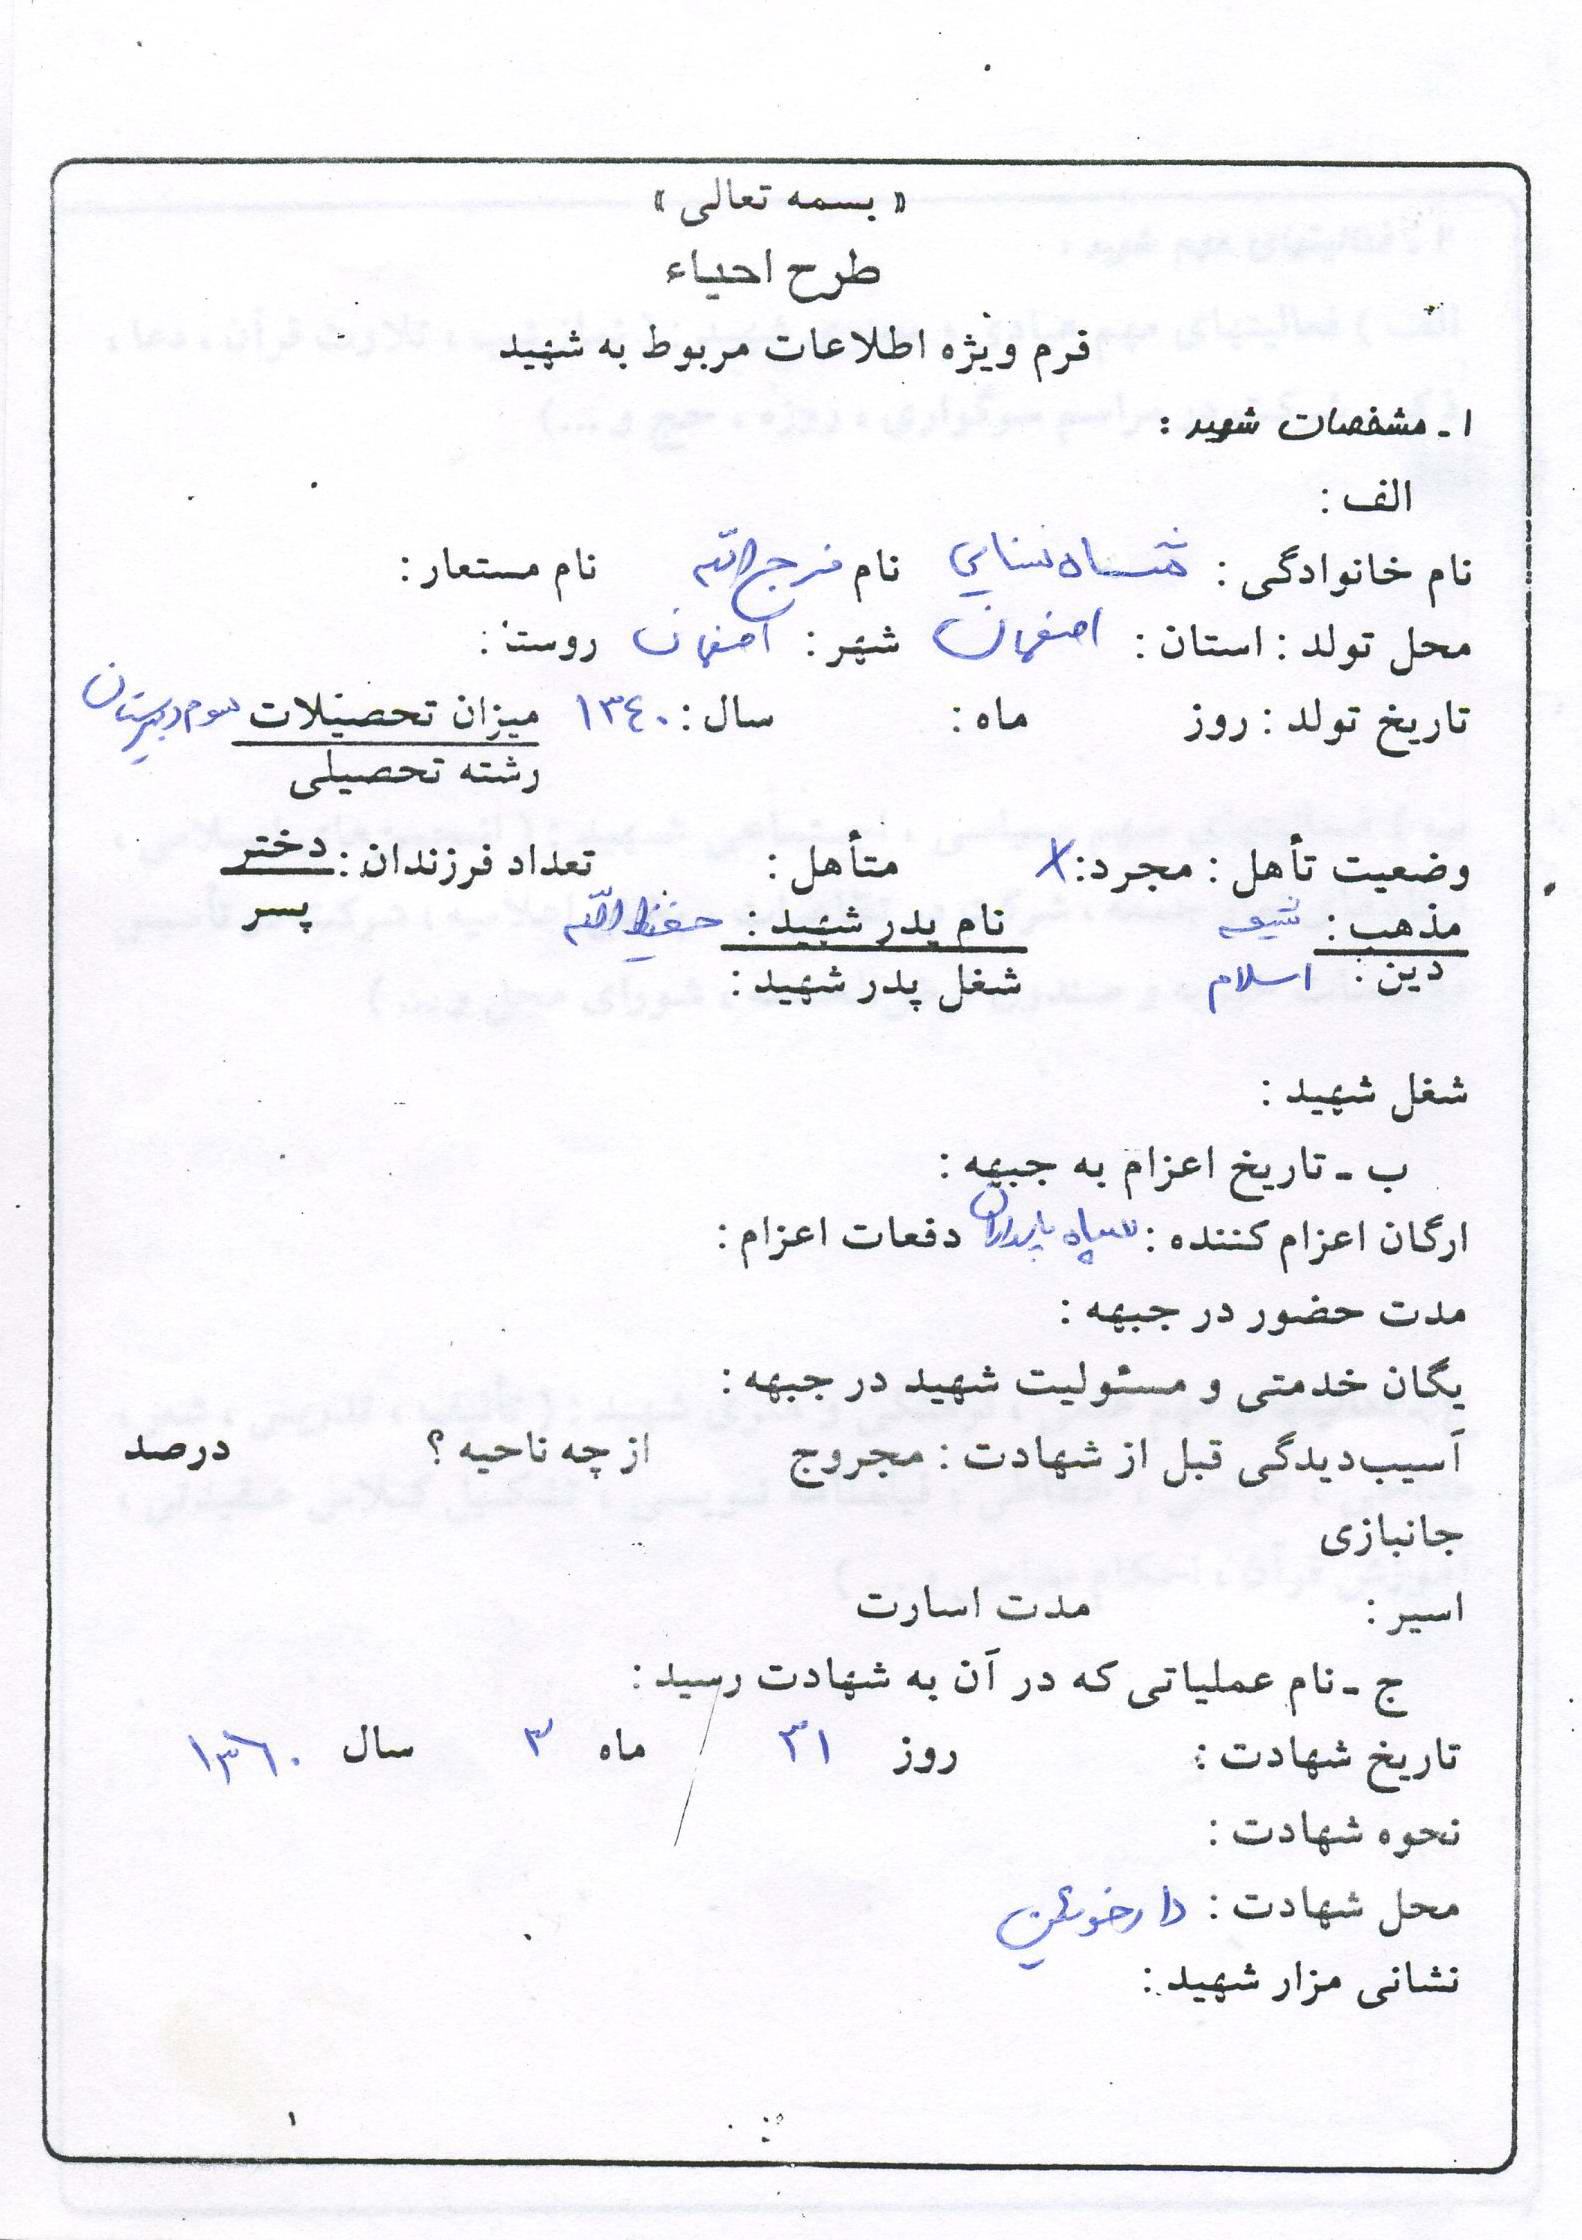 « بسمه تعالی »
طرح احیاء
فرم ویژه اطلاعات مربوط به شهید
۱ـ مشخصات شهید :
الف :
نام خانوادگی : شاه سنایی نام فرج الله نام مستعار :
محل تولد : استان : اصفهان شهر : اصفهان روستا :
تاریخ تولد : روز ماه : سال : ۱۳۴۰ میزان تحصیلات سوم دبیرستان
رشته تحصیلی
وضعیت تأهل : مجرد : X متأهل : تعداد فرزندان : دختر
پسر
مذهب : شیعه نام پدر شهید : حفیظ الله
دین : اسلام شغل پدر شهید :
شغل شهید :
ب ـ تاریخ اعزام به جبهه :
ارگان اعزام کننده : سپاه پاسداران دفعات اعزام :
مدت حضور در جبهه :
یگان خدمتی و مسئولیت شهید در جبهه :
آسیب‌دیدگی قبل از شهادت : مجروح از چه ناحیه ؟ درصد
جانبازی
اسیر : مدت اسارت
ج ـ نام عملیاتی که در آن به شهادت رسید :
تاریخ شهادت : روز ۳۱ ماه ۳ سال ۱۳۶۰
نحوه شهادت :
محل شهادت : دارخوئین
نشانی مزار شهید :
۱